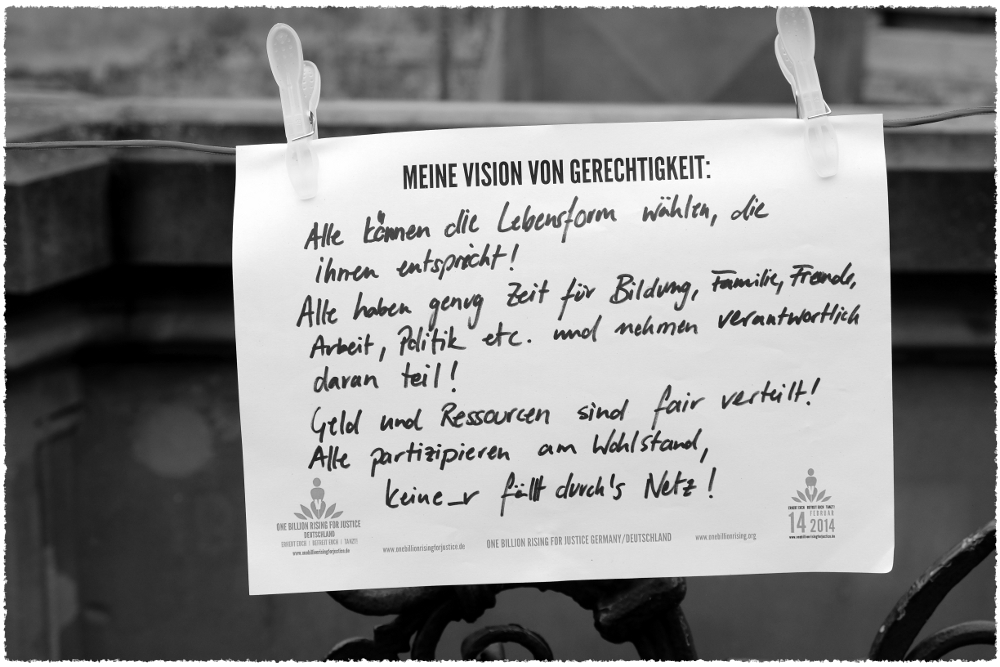 MEINE VISION VON GERECHTIGKEIT:
Alle können die Lebensform wählen, die
ihnen entspricht!
Alle haben genug Zeit für Bildung, Familie, Freunde,
Arbeit, Politik etc. und nehmen verantwortlich
daran teil!
Geld und Ressourcen sind fair verteilt!
Alle partizipieren am Wohlstand,
keine_r fällt durch's Netz!
ONE BILLION RISING FOR JUSTICE
DEUTSCHLAND
ERHEBT EUCH | BEFREIT EUCH | TANZT!
www.onebillionrisingforjustice.de
www.onebillionrisingforjustice.de
ONE BILLION RISING FOR JUSTICE GERMANY/DEUTSCHLAND
www.onebillionrising.org
ERHEBT EUCH BEFREIT EUCH TANZT!
14 FEBRUAR 2014
www.onebillionrisingforjustice.de